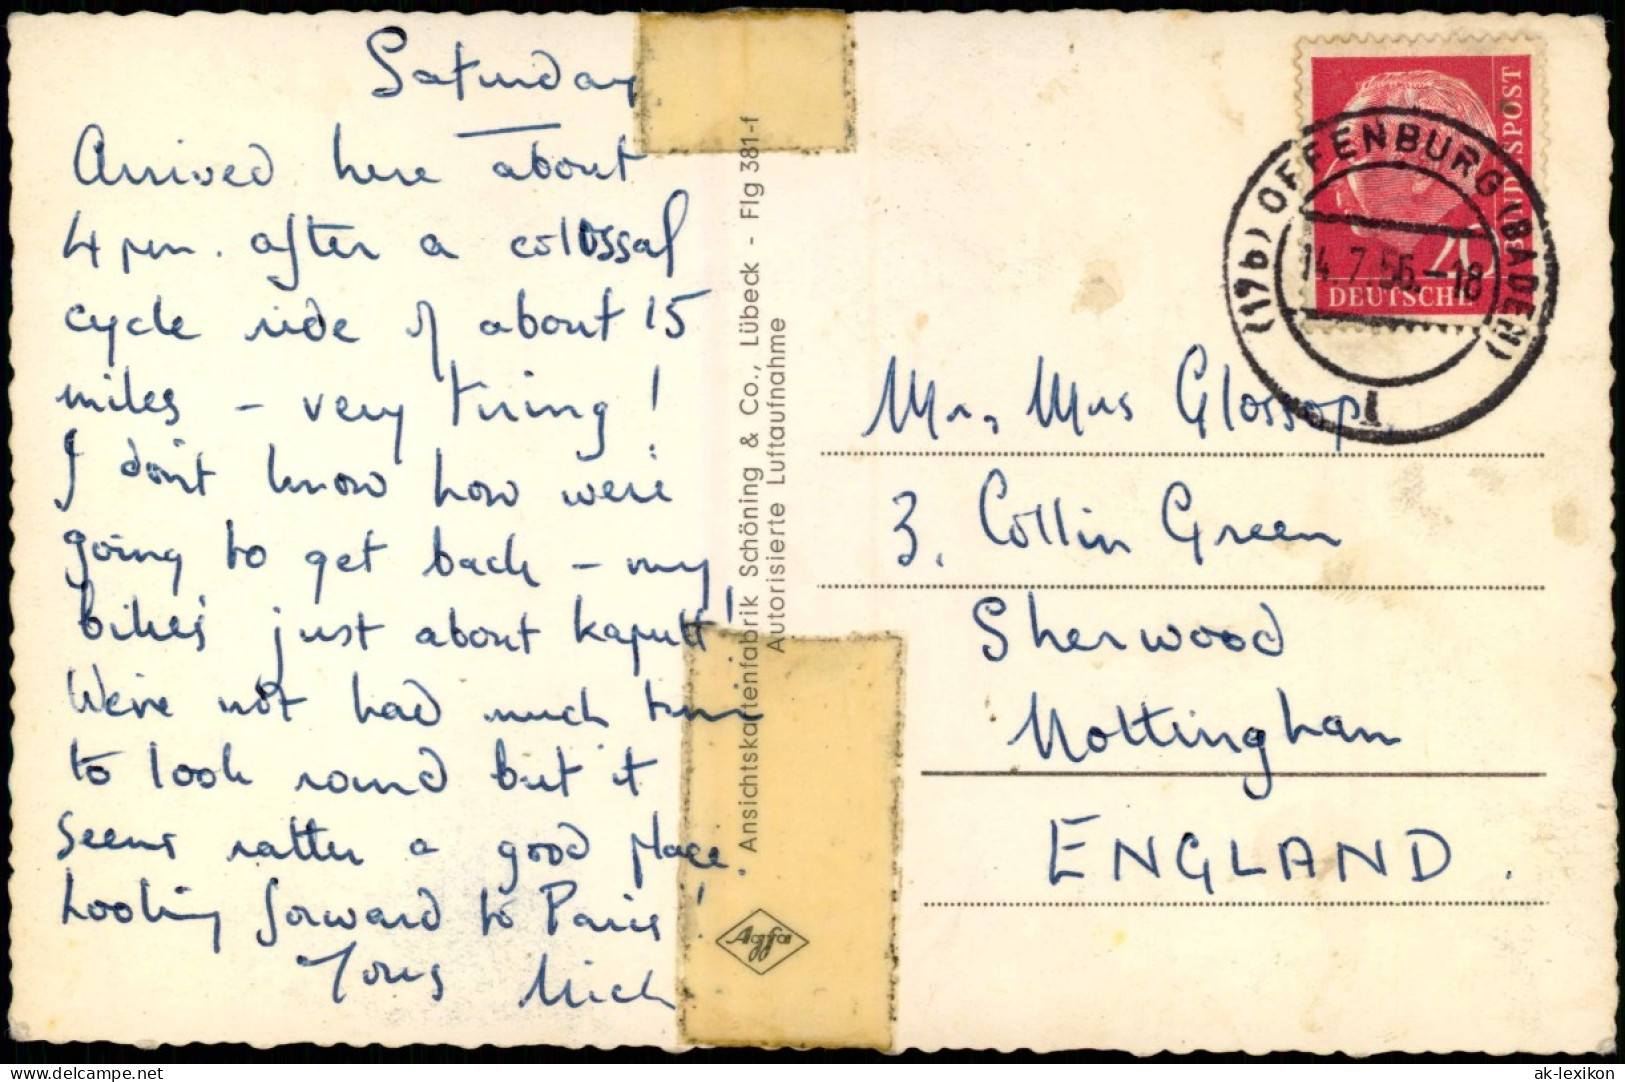 Saturday
Arrived here about
4 pm. after a colossal
cycle ride of about 15
miles – very tiring!
I don't know how we're
going to get back – my
bike's just about kaputt!
We've not had much time
to look round but it
seems rather a good place.
Looking forward to Paris!
Yours Mick
Ansichtskartenfabrik Schöning & Co., Lübeck - Flg 381-f
Autorisierte Luftaufnahme
Agfa
DEUTSCHE
BUNDESPOST
20
(17b) OFFENBURG (BADEN)
14.7.56.-18
1
Mr, Mrs Glossop
3, Collin Green
Sherwood
Nottingham
ENGLAND.
delcampe.net
ak-lexikon